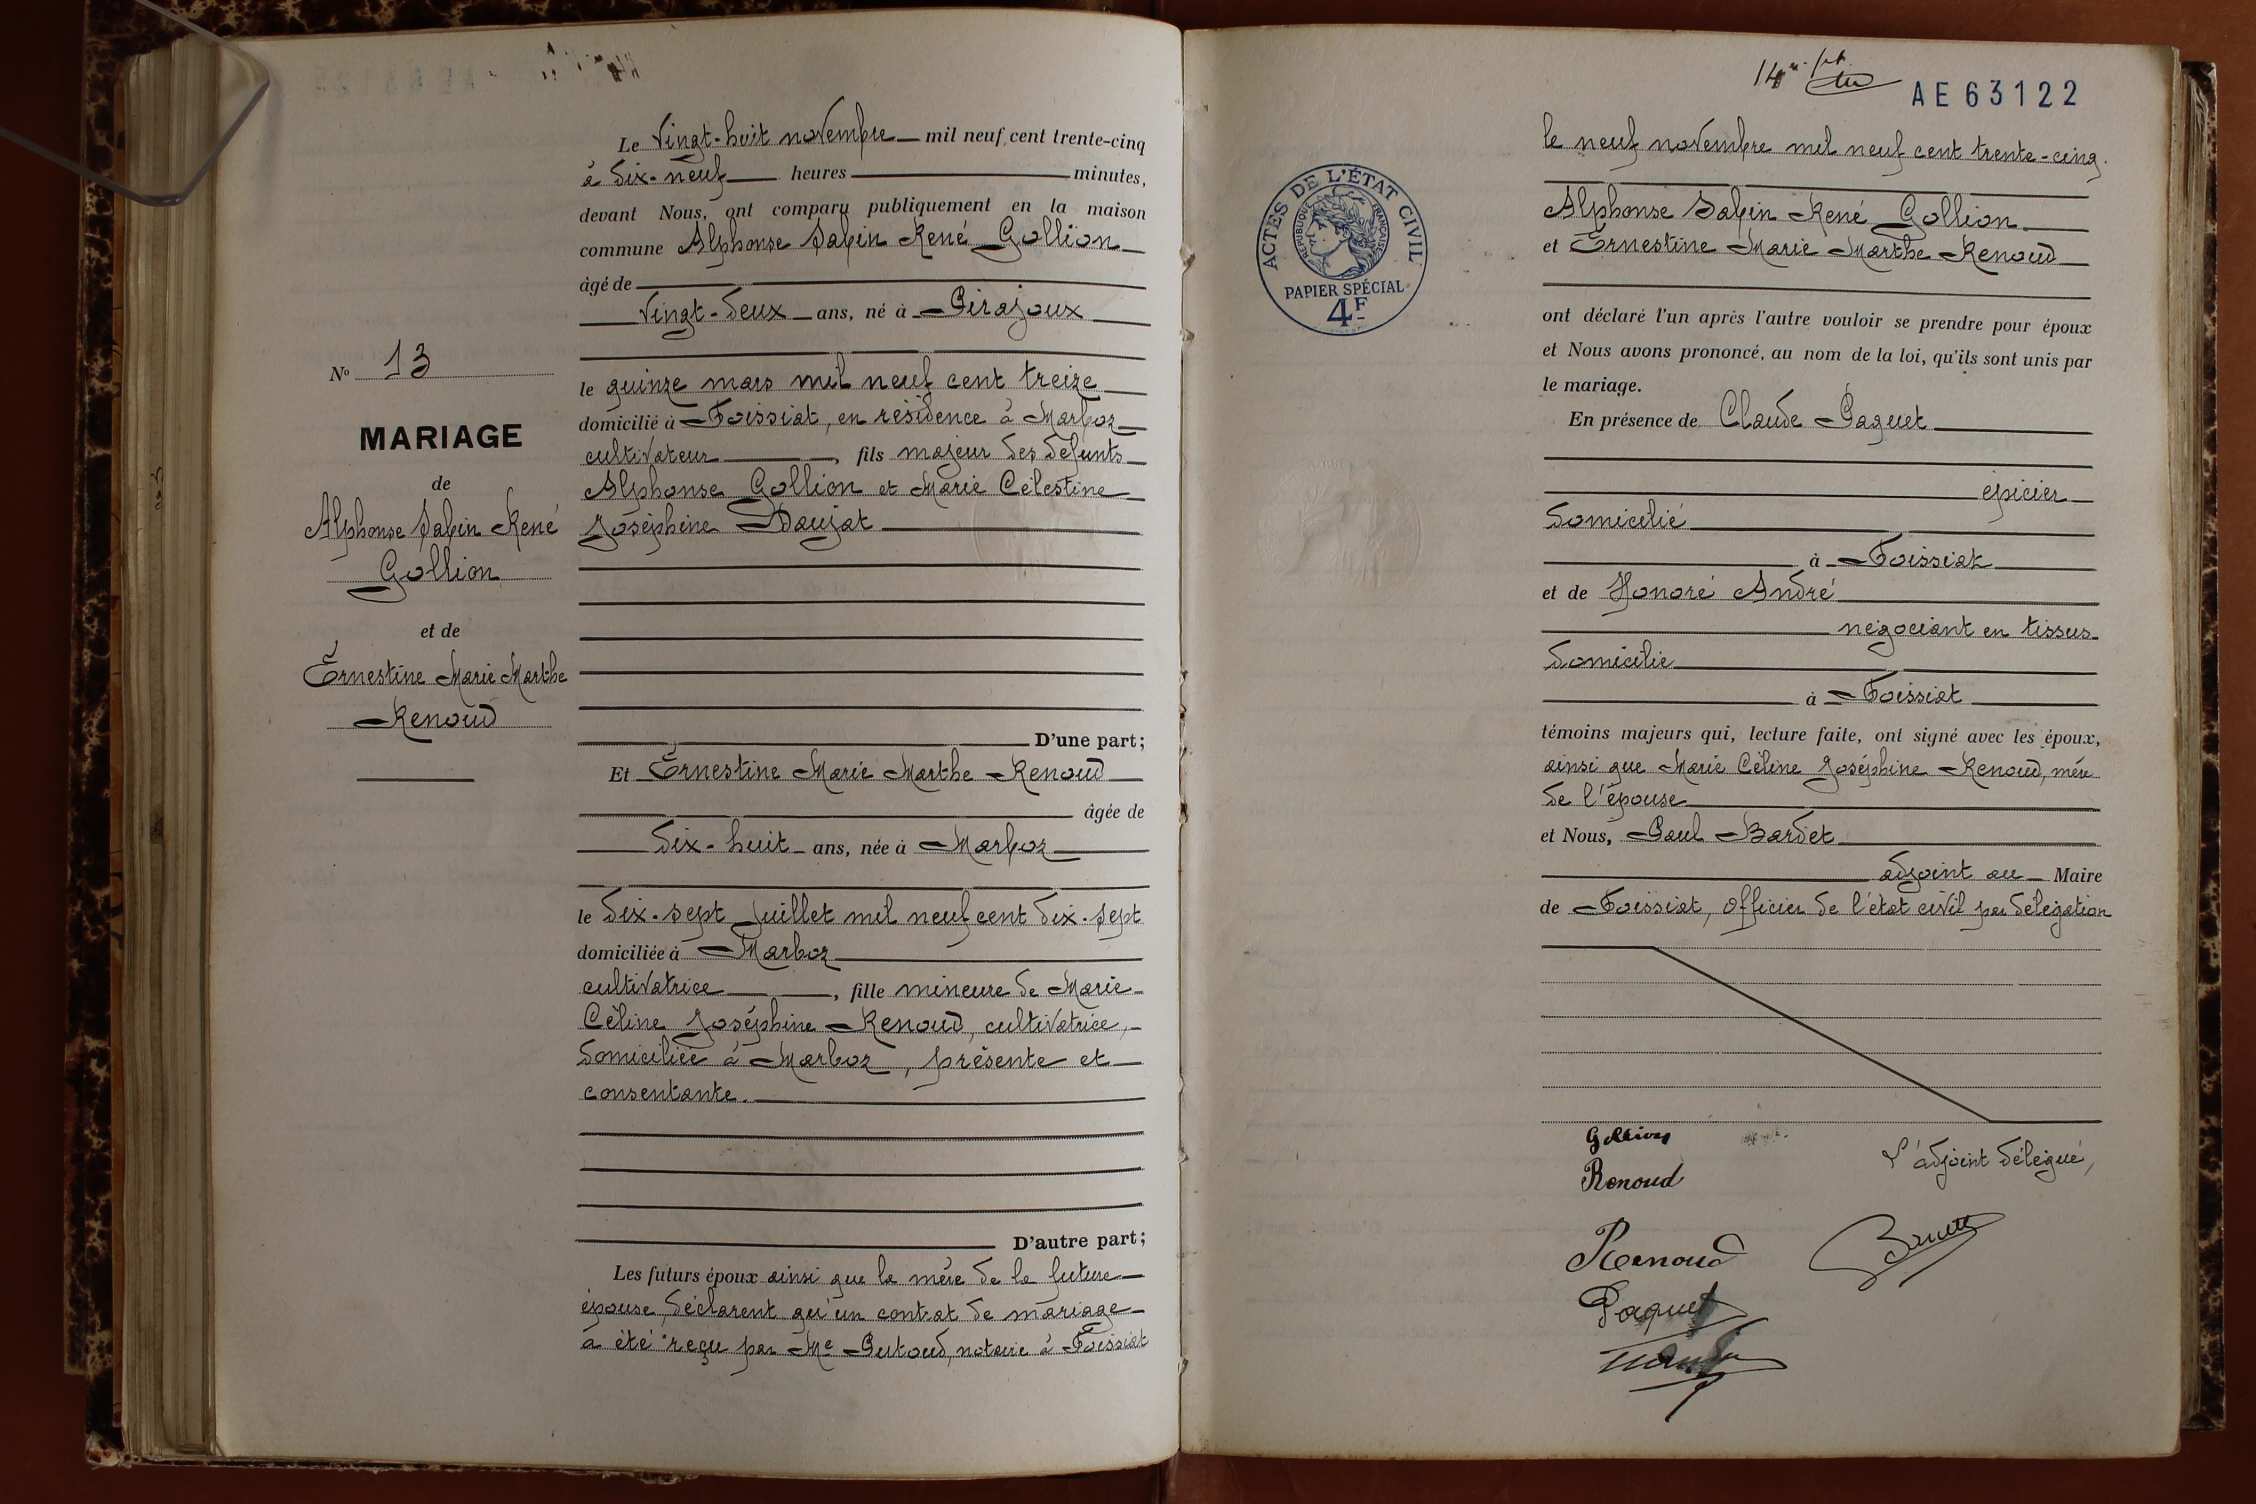 Le Vingt-huit novembre mil neuf cent trente-cinq
à dix-neuf heures minutes,
devant Nous, ont comparu publiquement en la maison
commune Alphonse Sabin René Gollion
âgé de
vingt-deux ans, né à Pirajoux
le quinze mars mil neuf cent treize
domicilié à Foissiat, en résidence à Marboz
cultivateur, fils majeur des défunts
Alphonse Gollion et Marie Célestine
Joséphine Daujat
D'une part;
Et Ernestine Marie Marthe Renoud
âgée de
dix-huit ans, née à Marboz
le dix-sept Juillet mil neuf cent dix-sept
domiciliée à Marboz
cultivatrice, fille mineure de Marie
Céline Joséphine Renoud, cultivatrice,
domiciliée à Marboz, présente et
consentante.
D'autre part;
Les futurs époux ainsi que la mère de la future
épouse, déclarent qu'un contrat de mariage
a été reçu par Me Putoud, notaire à Foissiat
No 13
MARIAGE
de
Alphonse Sabin René
Gollion
et de
Ernestine Marie Marthe
Renoud
14
AE63122
ACTES DE L'ÉTAT CIVIL
RÉPUBLIQUE FRANÇAISE
PAPIER SPÉCIAL
4F
le neuf novembre mil neuf cent trente-cinq.
Alphonse Sabin René Gollion
et Ernestine Marie Marthe Renoud
ont déclaré l'un après l'autre vouloir se prendre pour époux
et Nous avons prononcé, au nom de la loi, qu'ils sont unis par
le mariage.
En présence de Claude Paquet
épicier
domicilié
à Foissiat
et de Honoré André
négociant en tissus
domicilié
à Foissiat
témoins majeurs qui, lecture faite, ont signé avec les époux,
ainsi que Marie Céline Joséphine Renoud, mère
de l'épouse
et Nous, Paul Bardet
adjoint au Maire
de Foissiat, officier de l'état civil par délégation
Gollion
Renoud
L'adjoint délégué,
Renoud
Bardet
Paquet